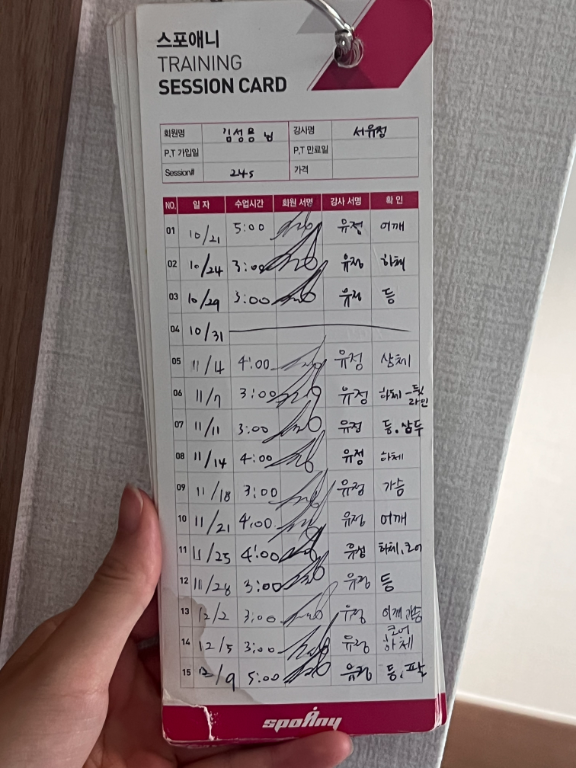 스포애니
TRAINING
SESSION CARD
회원명 김성용 님 강사명 서유정
P.T 가입일 P.T 만료일
Session# 24s 가격
NO. 일 자 수업시간 회원 서명 강사 서명 확 인
01 10/21 5:00 유정 어깨
02 10/24 3:00 유정 하체
03 10/29 3:00 유정 등
04 10/31
05 11/4 4:00 유정 상체
06 11/7 3:00 유정 하체-뒷
라인
07 11/11 3:00 유정 등,삼두
08 11/14 4:00 유정 하체
09 11/18 3:00 유정 가슴
10 11/21 4:00 유정 어깨
11 11/25 4:00 유정 하체,코어
12 11/28 3:00 유정 등
13 12/2 3:00 유정 어깨,가슴
14 12/5 3:00 유정 코어
하체
15 12/9 5:00 유정 등,팔
spoAny